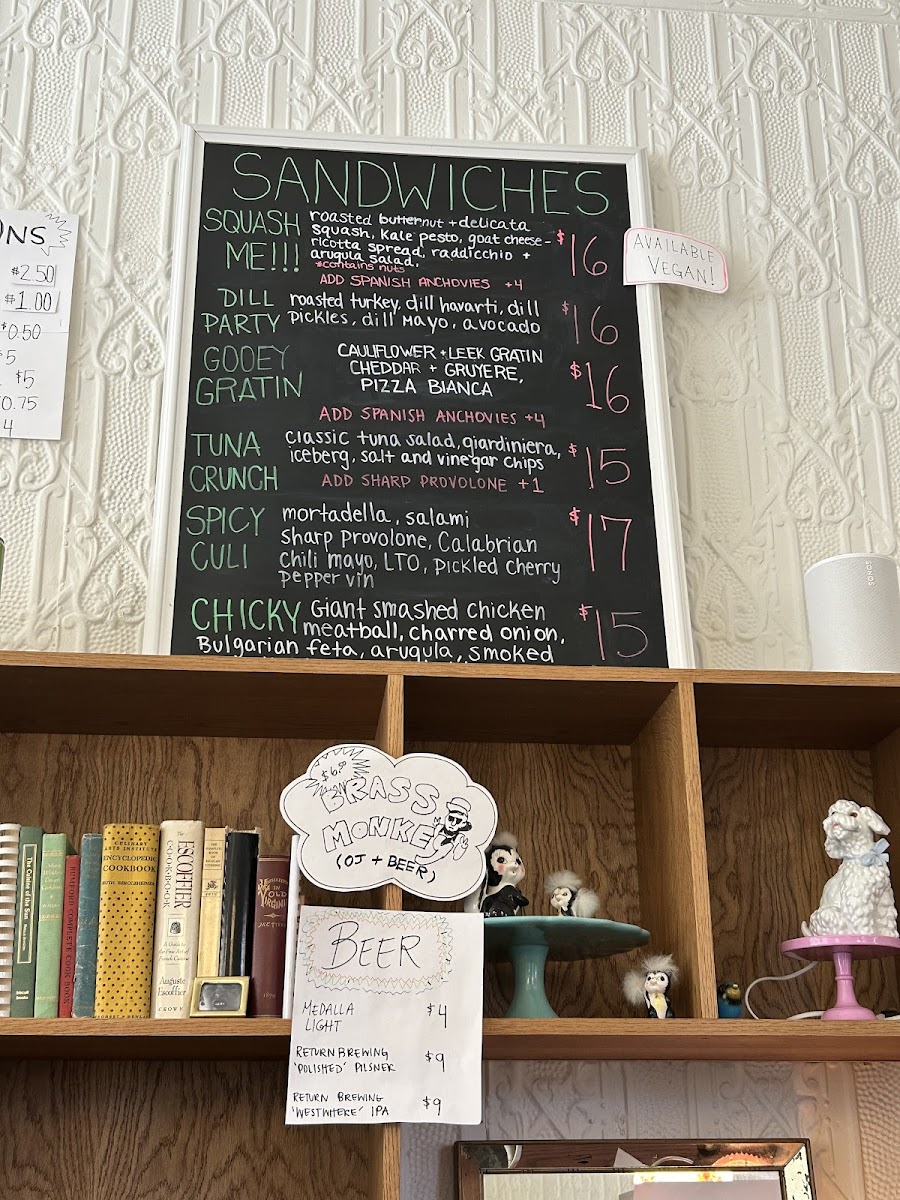 SANDWICHES
SQUASH
ME!!!
roasted butternut + delicata
squash, kale pesto, goat cheese-
ricotta spread, raddicchio +
arugula salad.
*contains nuts
$16
AVAILABLE
VEGAN!
ADD SPANISH ANCHOVIES +4
DILL
PARTY
roasted turkey, dill havarti, dill
pickles, dill mayo, avocado
$16
GOOEY
GRATIN
CAULIFLOWER + LEEK GRATIN
CHEDDAR + GRUYERE,
PIZZA BIANCA
$16
ADD SPANISH ANCHOVIES +4
TUNA
CRUNCH
classic tuna salad, giardiniera,
iceberg, salt and vinegar chips
$15
ADD SHARP PROVOLONE +1
SPICY
CULI
mortadella, salami
sharp provolone, Calabrian
chili mayo, LTO, pickled cherry
pepper vin
$17
CHICKY
Giant smashed chicken
meatball, charred onion,
Bulgarian feta, arugula, smoked
$15
ONS
$2.50
$1.00
$0.50
$5
$5
0.75
4
SONOS
$6
BRASS
MONKE
(OJ + BEER)
BEER
MEDALLA
LIGHT
$4
RETURN BREWING
'POLISHED' PILSNER
$9
RETURN BREWING
'WESTWHERE' IPA
$9
The Cuisine of the Sun
COMPLETE COOK BOOK
CULINARY
ARTS INSTITUTE
ENCYCLOPEDIC
COOKBOOK
RUTH BEROLZHEIMER
ESCOFFIER
COOKBOOK
A Guide to
the Fine Art of
French Cuisine
Auguste
Escoffier
CROWN
IN
OLD
VIRGINIA